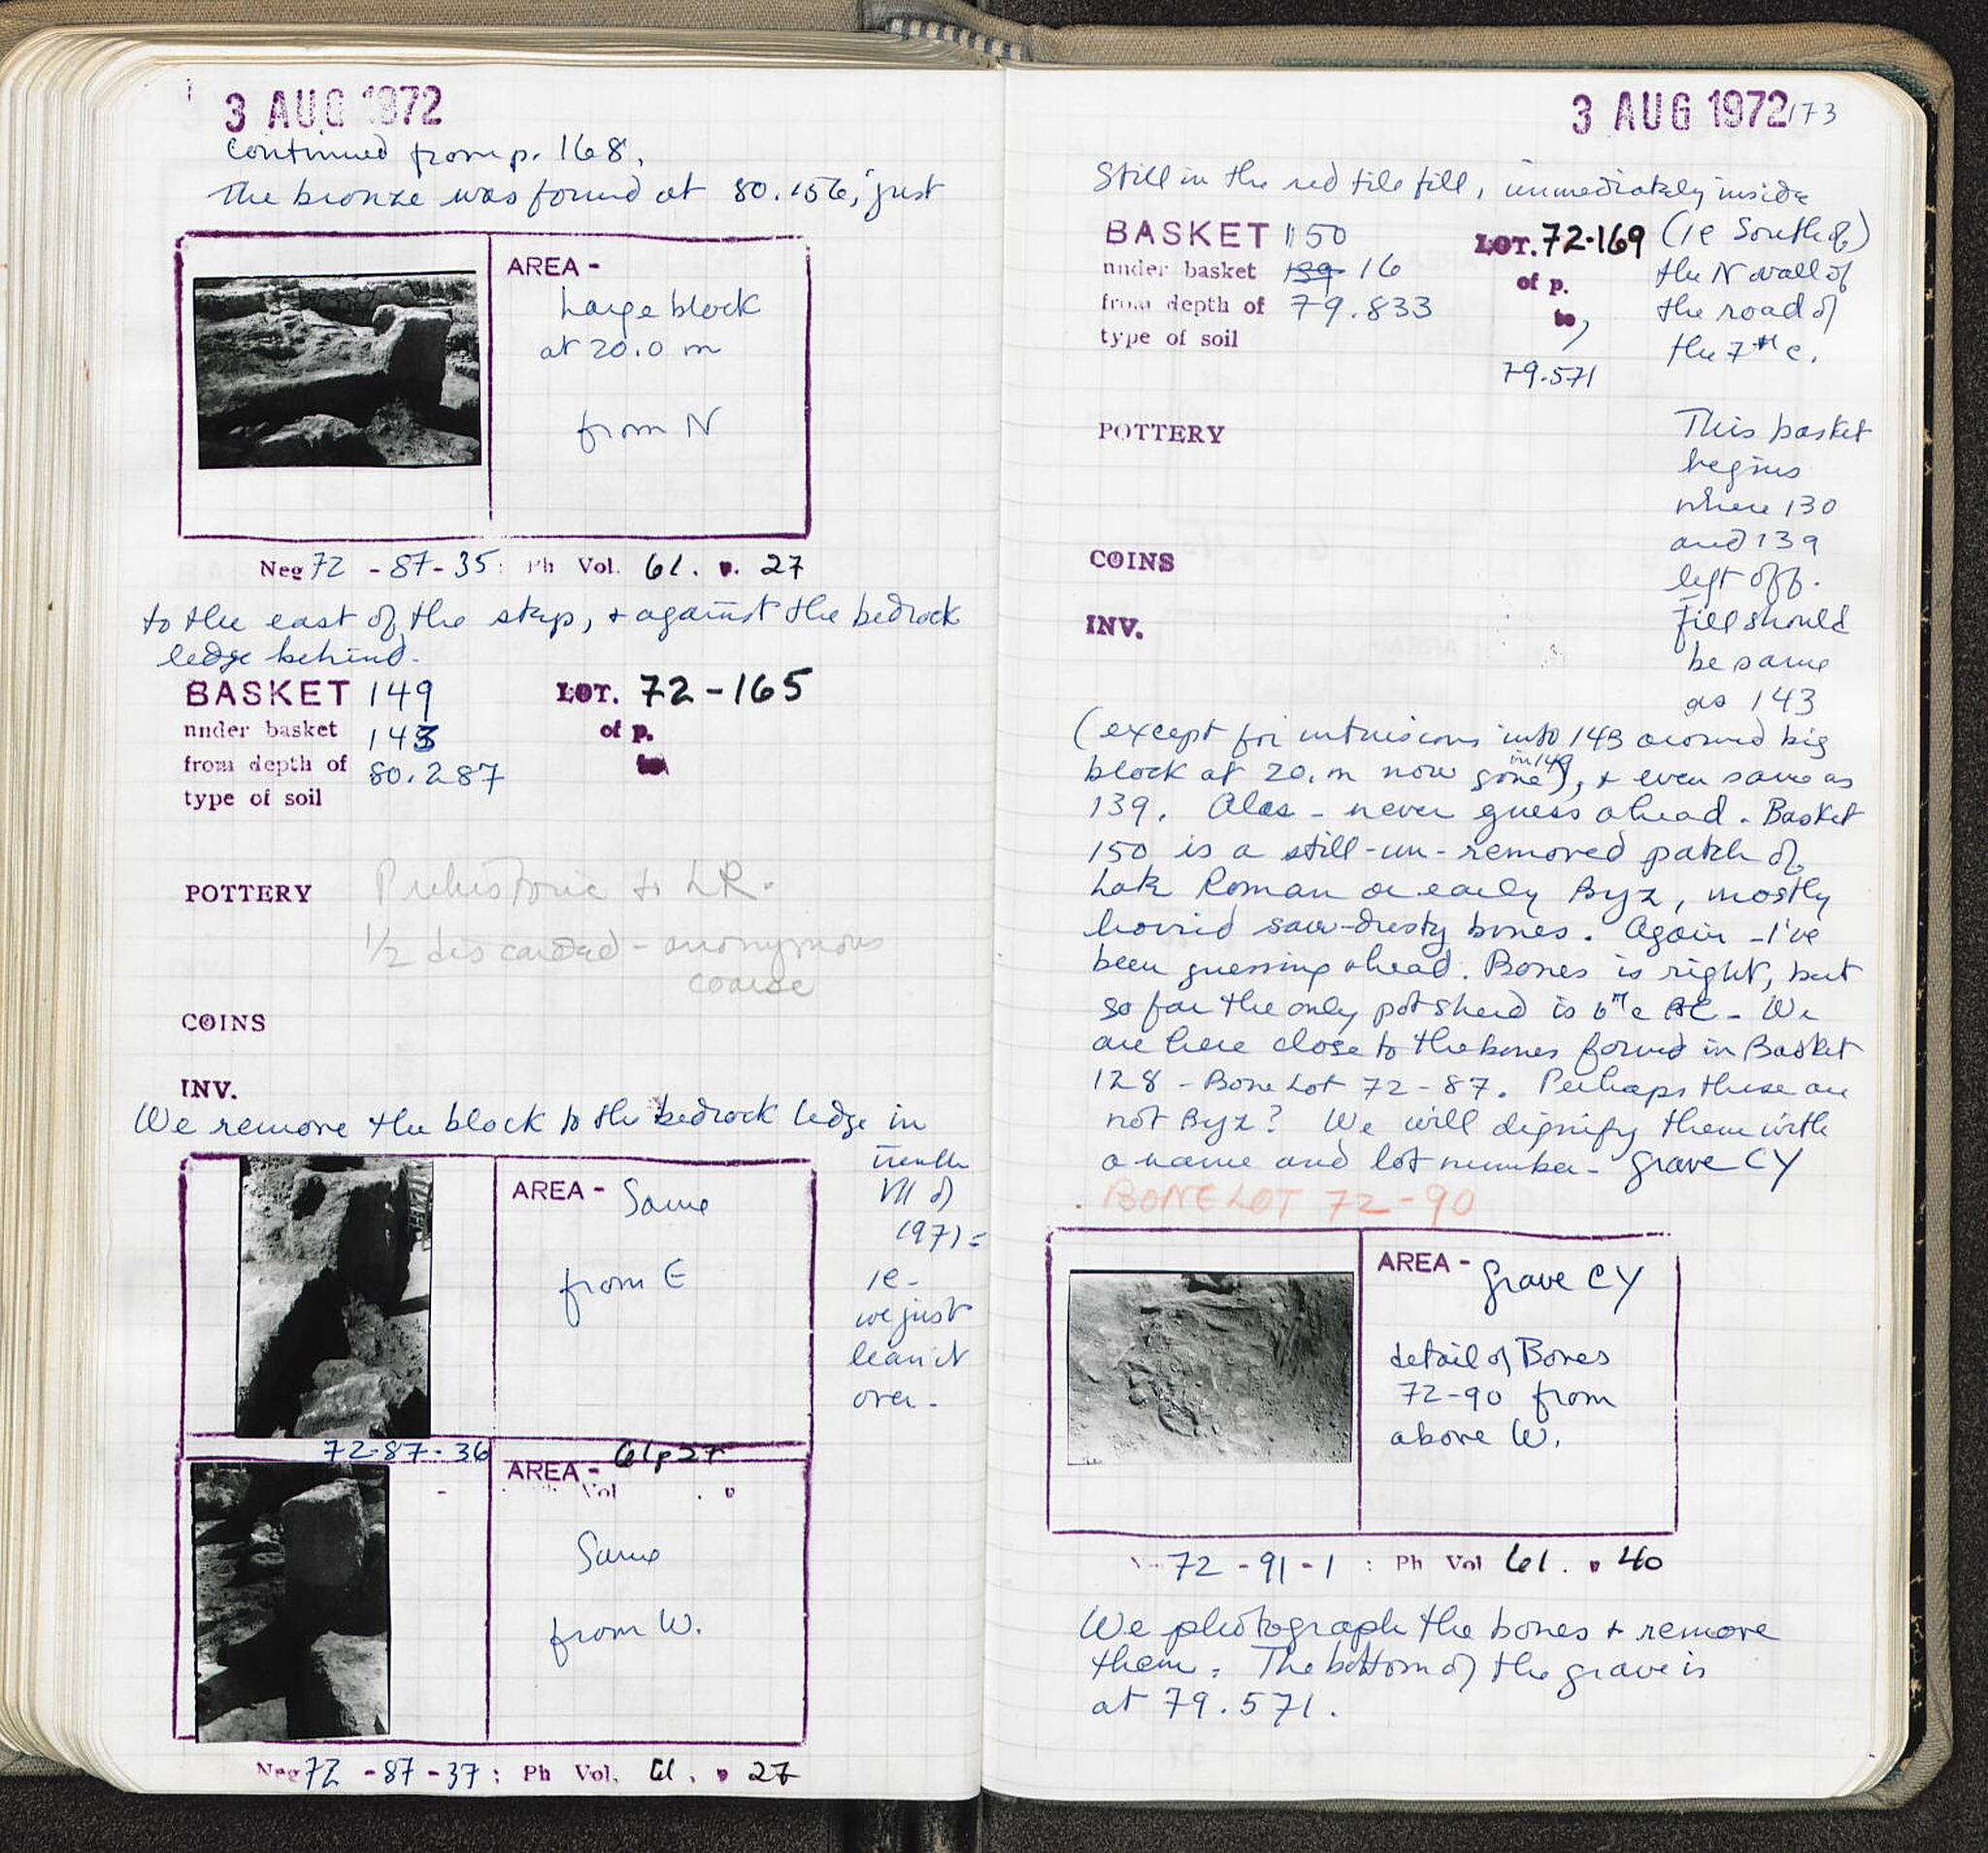 3 AUG 1972
Continued from p. 168.
The bronze was found at 80.156, just
AREA -
Large block
at 20.0 m
from N
Neg 72 - 87 - 35 : Ph Vol. 61. p. 27
to the east of the step, + against the bedrock
ledge behind.
BASKET 149 LOT. 72-165
under basket 143 of p.
from depth of 80.287 to
type of soil
POTTERY Prehistoric to LR.
1/2 discarded - anonymous
coarse
COINS
INV.
We remove the block to the bedrock ledge in
trench
VII of
1971 =
ie -
we just
lean it
over -
AREA - Same
from E
72-87-36 61 p 27
AREA -
Vol . p
Same
from W.
Neg 72 - 87 - 37 : Ph Vol. 61. p 27
3 AUG 1972 173
Still in the red tile fill, immediately inside
BASKET 150 LOT. 72-169 (ie South of)
under basket 139 16 of p. the N wall of
from depth of 79.833 to, the road of
type of soil the 7th c.
79.571
POTTERY
This basket
begins
where 130
and 139
left off.
Fill should
be same
as 143
COINS
INV.
(except for intrusions into 143 around big
block at 20. m now gone in 149), + even same as
139. Alas - never guess ahead. Basket
150 is a still-un-removed patch of
Late Roman or early Byz, mostly
horrid saw-dusty bones. Again - I've
been guessing ahead. Bones is right, but
so far the only pot sherd is 6th c BC - We
are here close to the bones found in Basket
128 - Bone Lot 72-87. Perhaps these are
not Byz? We will dignify them with
a name and lot number - grave CY
BONE LOT 72-90
AREA - Grave CY
detail of Bones
72-90 from
above W.
72 - 91 - 1 : Ph Vol 61. p 40
We photograph the bones + remove
them. The bottom of the grave is
at 79.571.